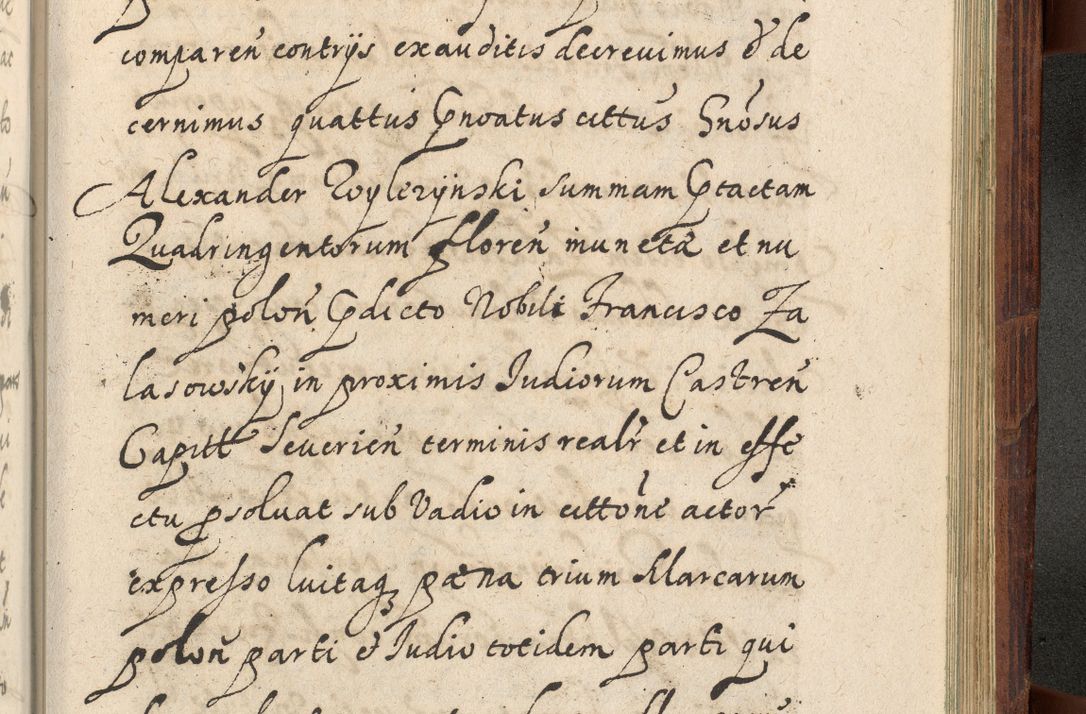 comparen̄ contrÿs exauditis decrevimus & de
cernimus quattus Pnoatus cittus Gnosus
Alexander Woylczÿnski summam Ptactam
Quadringentorum floren̄ in moneta et nu
meri polon̄ Pdicto Nobili Francisco Za
lasowskÿ in proximis Iudiorum Castren̄
Capitt Severien̄ terminis realr et in effe
ctu psoluat sub Vadio in cittōne actor
expresso luitaq₃ pæna trium Marcarum
polon̄ parti & Iudio totidem parti qui